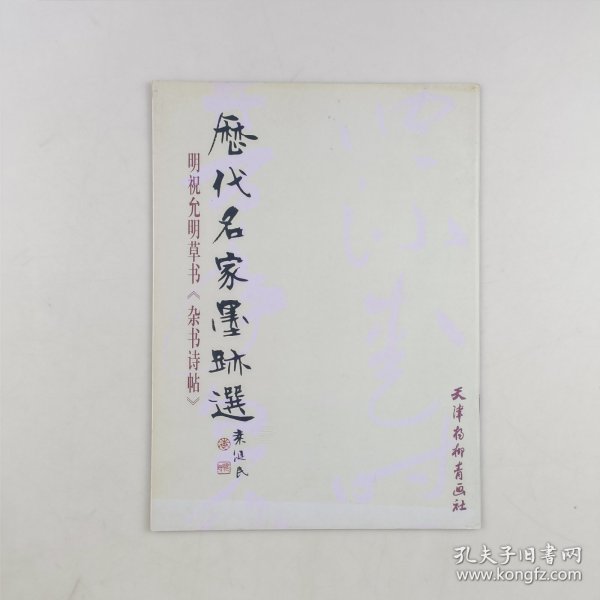 歷代名家墨跡選
明祝允明草书《杂书诗帖》
天津杨柳青画社
孔夫子旧书网
www.kongfz.com